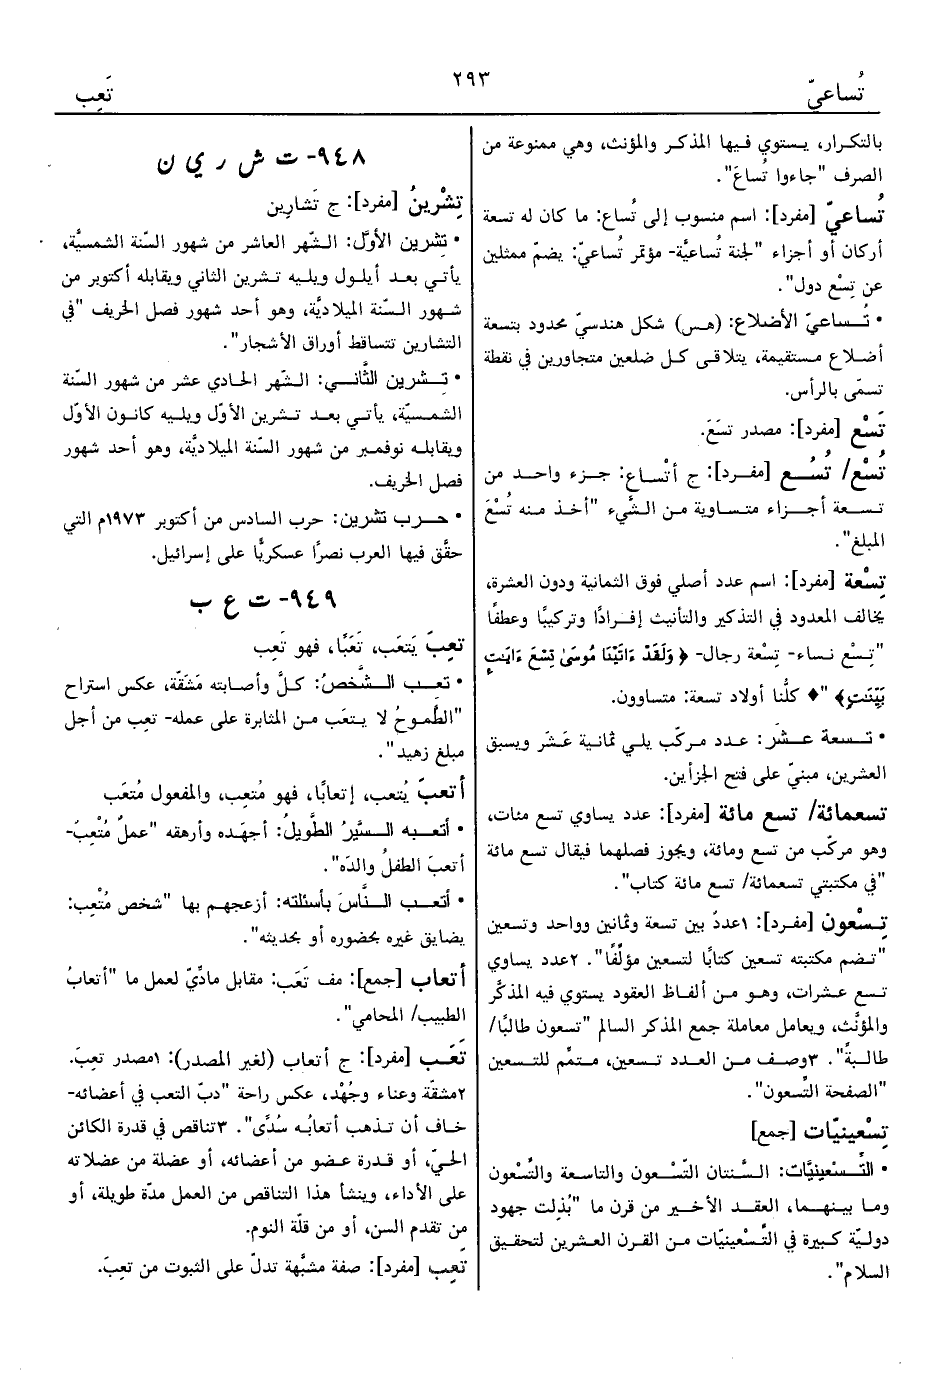 تُساعيّ
٢٩٣
تَعِب
بالتكرار، يستوي فيها المذكر والمؤنث، وهي ممنوعة من
الصرف "جاءوا تُساعَ".
تُساعيّ [مفرد]: اسم منسوب إلى تُساع: ما كان له تسعة
أركان أو أجزاء "لجنة تُساعيَّة- مؤتمر تُساعيّ: يضمّ ممثلين
عن تِسْع دول".
• تُساعيّ الأضلاع: (هس) شكل هندسيّ محدود بتسعة
أضلاع مستقيمة، يتلاقى كل ضلعين متجاورين في نقطة
تسمّى بالرأس.
تَسْع [مفرد]: مصدر تسَعَ.
تُسْع/ تُسُع [مفرد]: ج أتْساع: جزء واحد من
تسعة أجزاء متساوية من الشَّيء "أخذ منه تُسْعَ
المبلغ".
تِسْعة [مفرد]: اسم عدد أصلي فوق الثمانية ودون العشرة،
يخالف المعدود في التذكير والتأنيث إفرادًا وتركيبًا وعطفًا
"تِسْع نساء- تِسْعة رجال- ﴿وَلَقَدْ ءَاتَيْنَا مُوسَىٰ تِسْعَ ءَايَٰتٍ
بَيِّنَٰتٍ﴾ "♦ كلُّنا أولاد تسعة: متساوون.
• تسعة عشَر: عدد مركّب يلي ثمانية عَشَر ويسبق
العشرين، مبنيّ على فتح الجزأين.
تسعمائة/ تسع مائة [مفرد]: عدد يساوي تسع مئات،
وهو مركّب من تسع ومائة، ويجوز فصلهما فيقال تسع مائة
"في مكتبتي تسعمائة/ تسع مائة كتاب".
تِسْعون [مفرد]: ١عددٌ بين تسعة وثمانين وواحد وتسعين
"تضم مكتبته تسعين كتابًا لتسعين مؤلِّفًا". ٢عدد يساوي
تسع عشرات، وهو من ألفاظ العقود يستوي فيه المذكَّر
والمؤنَّث، ويعامل معاملة جمع المذكر السالم "تسعون طالبًا/
طالبةً". ٣وصف من العدد تسعين، متمِّم للتسعين
"الصفحة التِّسعون".
تِسْعينيّات [جمع]
• التِّسْعينيَّات: السَّنتان التِّسْعون والتاسعة والتِّسْعون
وما بينهما، العقد الأخير من قرن ما "بُذلت جهود
دوليّة كبيرة في التِّسْعينيّات من القرن العشرين لتحقيق
السلام".
٩٤٨- ت ش ر ي ن
تِشْرينُ [مفرد]: ج تَشارين
• تِشرين الأوّل: الشّهر العاشر من شهور السّنة الشمسيَّة،
يأتي بعد أيلول ويليه تشرين الثاني ويقابله أكتوبر من
شهور السّنة الميلاديَّة، وهو أحد شهور فصل الخريف "في
التشارين تتساقط أوراق الأشجار".
• تشرين الثّاني: الشّهر الحادي عشر من شهور السّنة
الشمسيّة، يأتي بعد تشرين الأوّل ويليه كانون الأوّل
ويقابله نوفمبر من شهور السّنة الميلاديَّة، وهو أحد شهور
فصل الخريف.
• حرب تشرين: حرب السادس من أكتوبر ١٩٧٣م التي
حقَّق فيها العرب نصرًا عسكريًّا على إسرائيل.
٩٤٩- ت ع ب
تعِبَ يَتعَب، تَعَبًا، فهو تَعِب
• تعب الشّخصُ: كلَّ وأصابته مَشَقّة، عكس استراح
"الطَّموحُ لا يتعَب من المثابرة على عمله- تعِب من أجل
مبلغ زهيد".
أتعبَ يُتعب، إتعابًا، فهو مُتعِب، والمفعول مُتعَب
• أتعبه السَّيرُ الطَّويلُ: أجهَده وأرهقه "عملٌ مُتْعِبٌ-
أتعبَ الطفلُ والدَه".
• أتعب النَّاسَ بأسئلته: أزعجهم بها "شخص مُتْعِب:
يضايق غيره بحضوره أو بحديثه".
أتعاب [جمع]: مف تَعَب: مقابل مادّيّ لعمل ما "أتعابُ
الطبيب/ المحامي".
تَعَب [مفرد]: ج أتعاب (لغير المصدر): ١مصدر تعِبَ.
٢مشقّة وعناء وجُهْد، عكس راحة "دبّ التعب في أعضائه-
خاف أن تذهب أتعابُه سُدًى". ٣تناقص في قدرة الكائن
الحيّ، أو قدرة عضو من أعضائه، أو عضلة من عضلاته
على الأداء، وينشأ هذا التناقص من العمل مدّة طويلة، أو
من تقدم السن، أو من قلّة النوم.
تَعِب [مفرد]: صفة مشبَّهة تدلّ على الثبوت من تعِبَ.